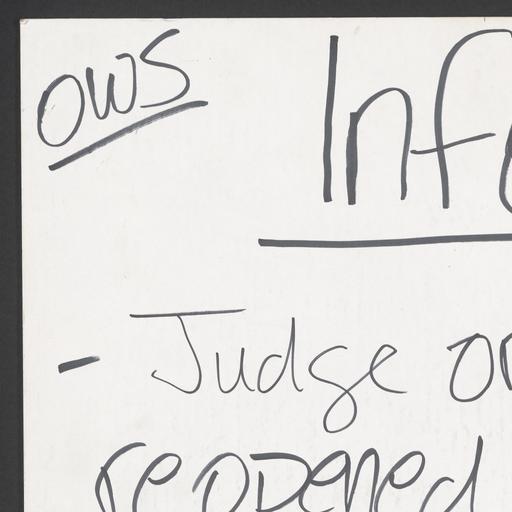 OWS
Inf
- Judge or
reopened